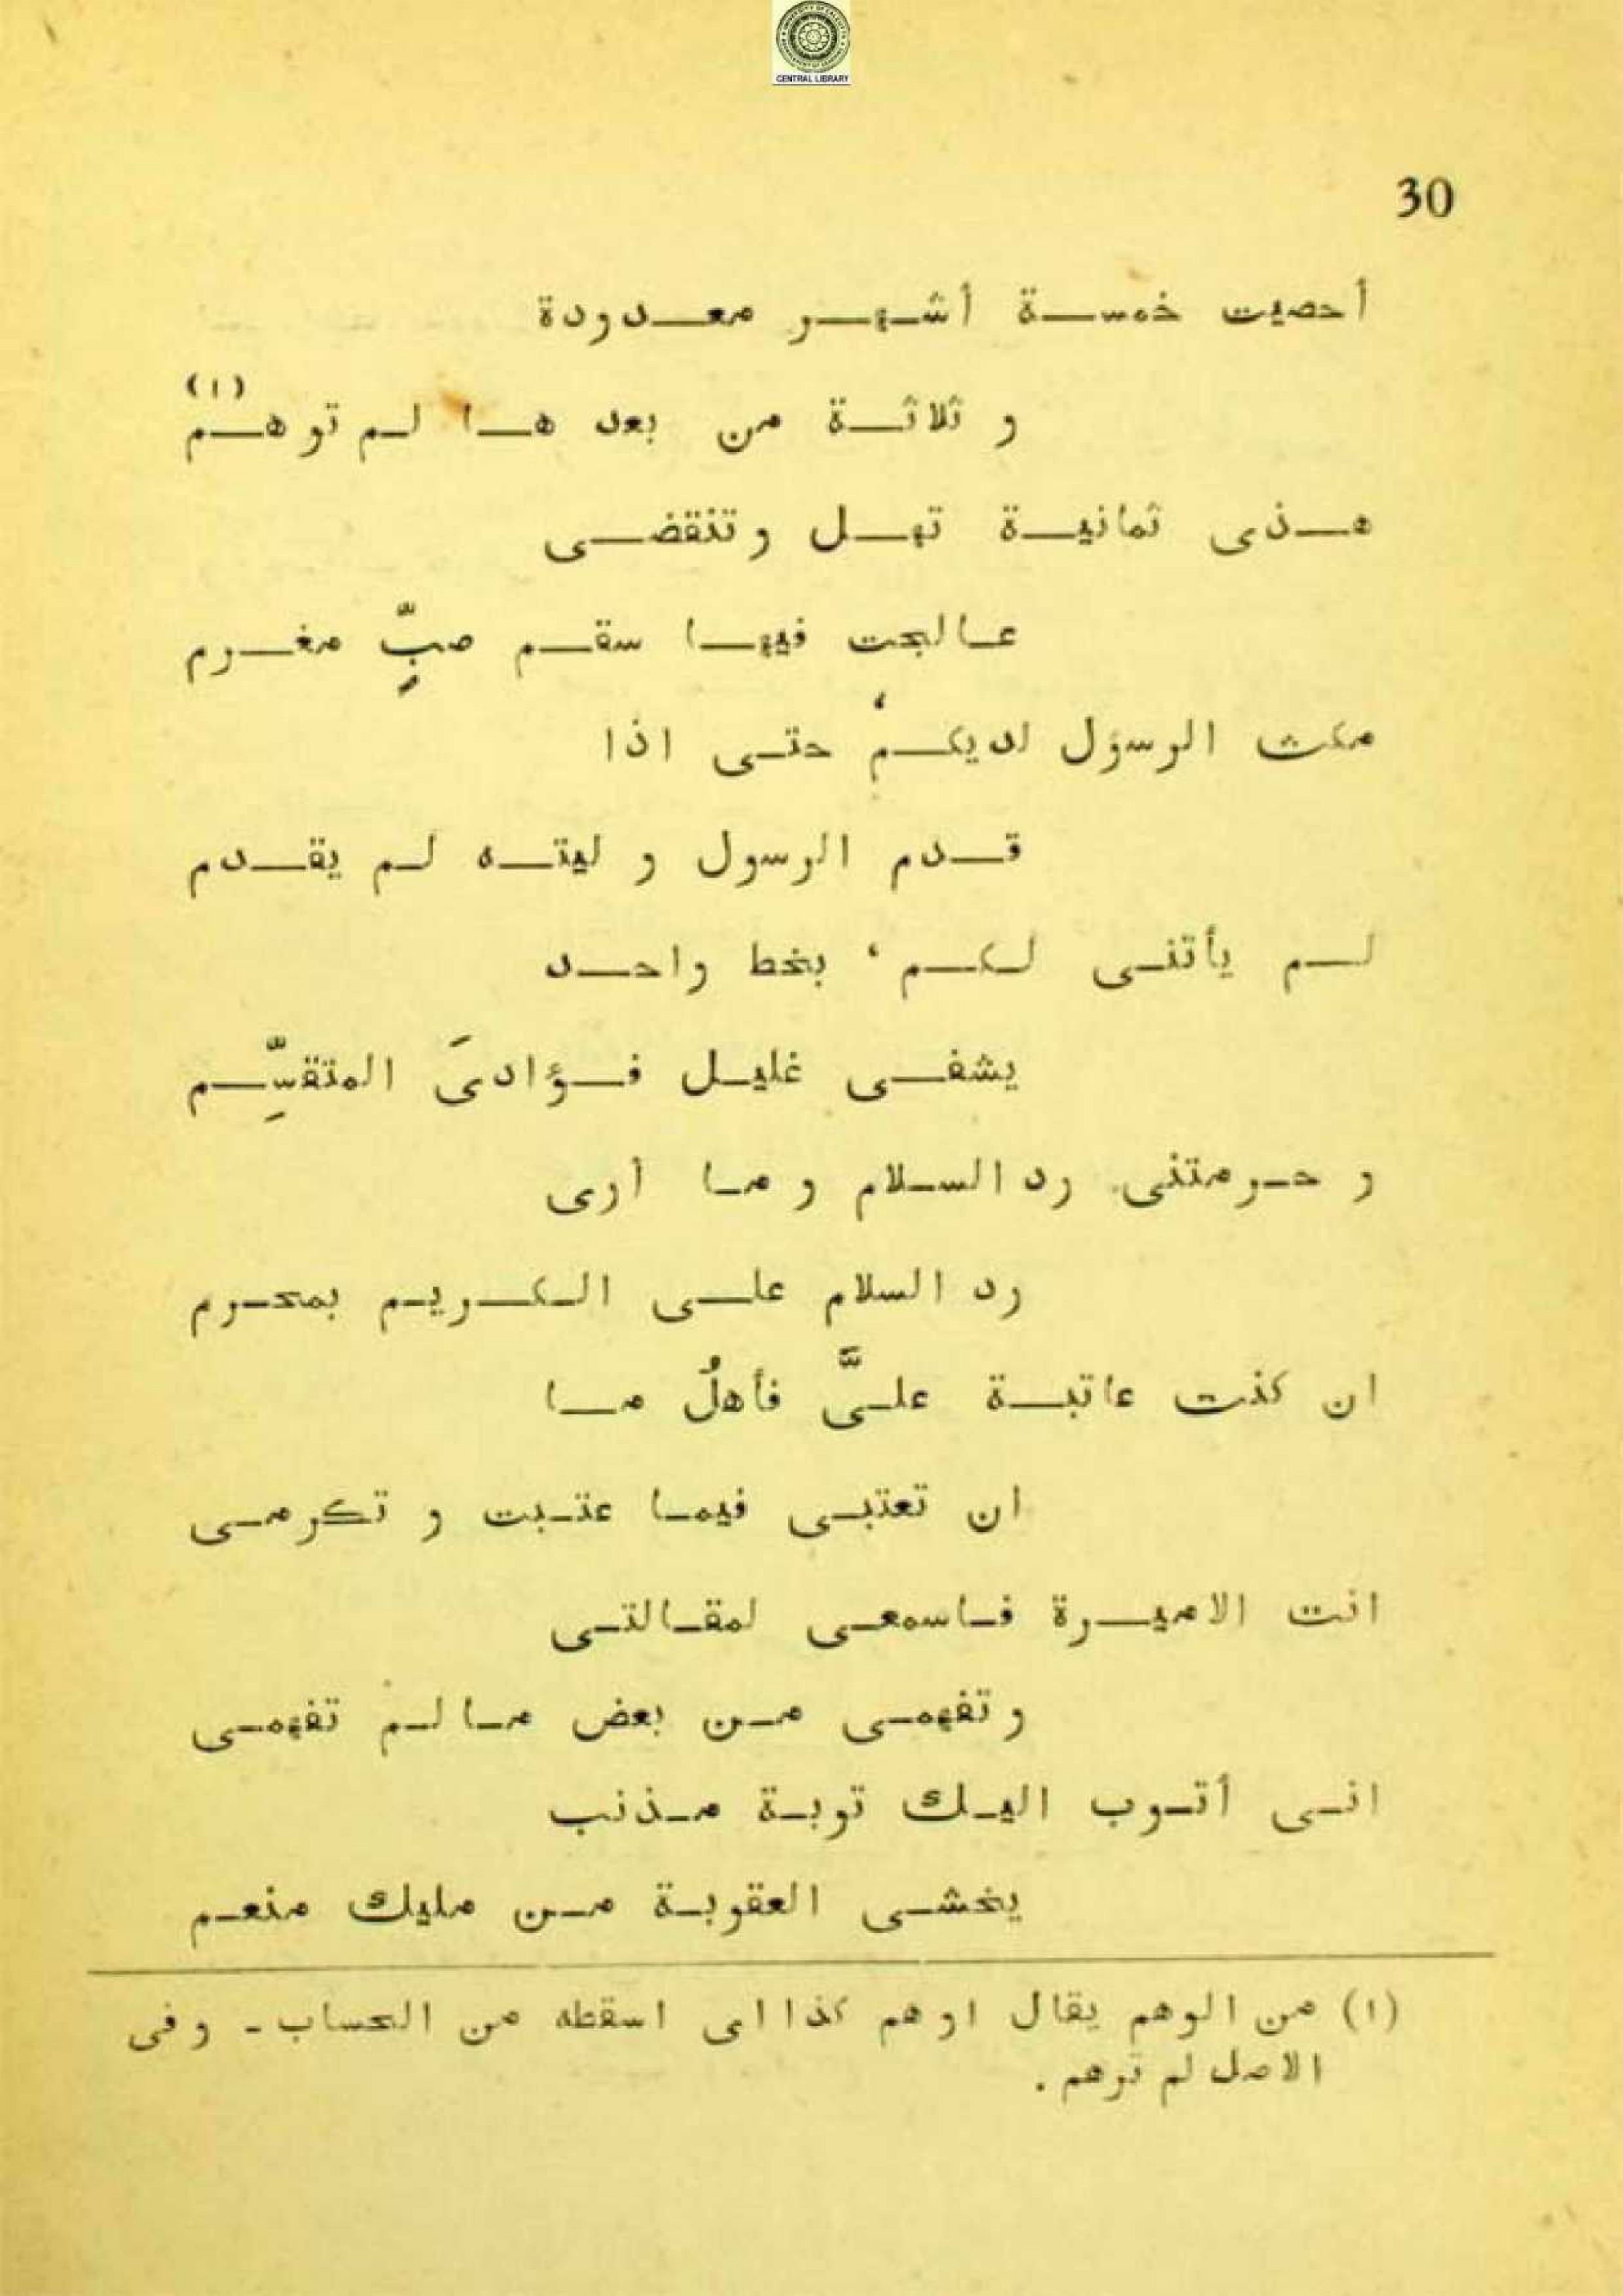 CENTRAL LIBRARY
30
أحصيت خمسة أشهر معدودة
(١)
و ثلاثة من بعد ها لم توهم
هذى ثمانية تهل و تنقضى
عالجت فيها سقم صبٍّ مغرم
مكث الرسول لديكم، حتى اذا
قدم الرسول و ليته لم يقدم
لم يأتنى لكم، بخط واحد
يشفى غليل فؤادىَ المتقسِّم
و حرمتنى رد السلام و ما أرى
رد السلام على الكريم بمحرم
ان كنت عاتبة علىَّ فأهلُ ما
ان تعتبى فيما عتبت و تكرمى
انت الاميرة فاسمعى لمقالتى
و تفهمى من بعض ما لم تفهمى
انى أتوب اليك توبة مذنب
يخشى العقوبة من مليك منعم
(١) من الوهم يقال اوهم كذا اى اسقطه من الحساب - و فى
الاصل لم ترهم .